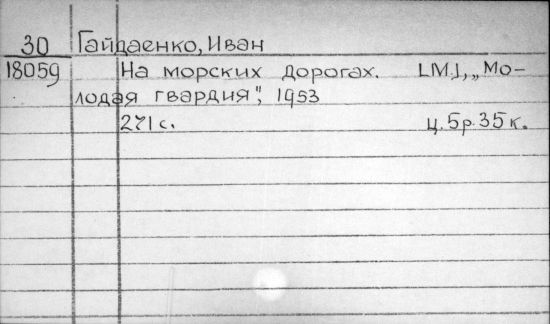 30 Гайдаенко, Иван
18059 На морских дорогах. [М.], „Мо-
лодая гвардия“, 1953
271 с. ц. 5 р. 35 к.